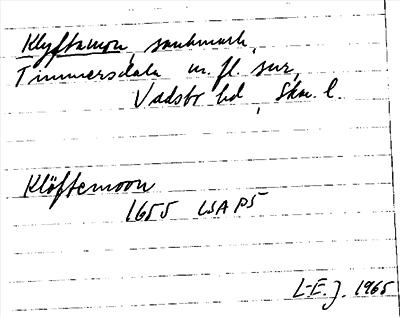 Klyftamon, sankmark,
Timmersdala m. fl. snr,
Vadsbo hd, Skar. l.
Klöftemoon
1655 LSA P5
L-E. J. 1965